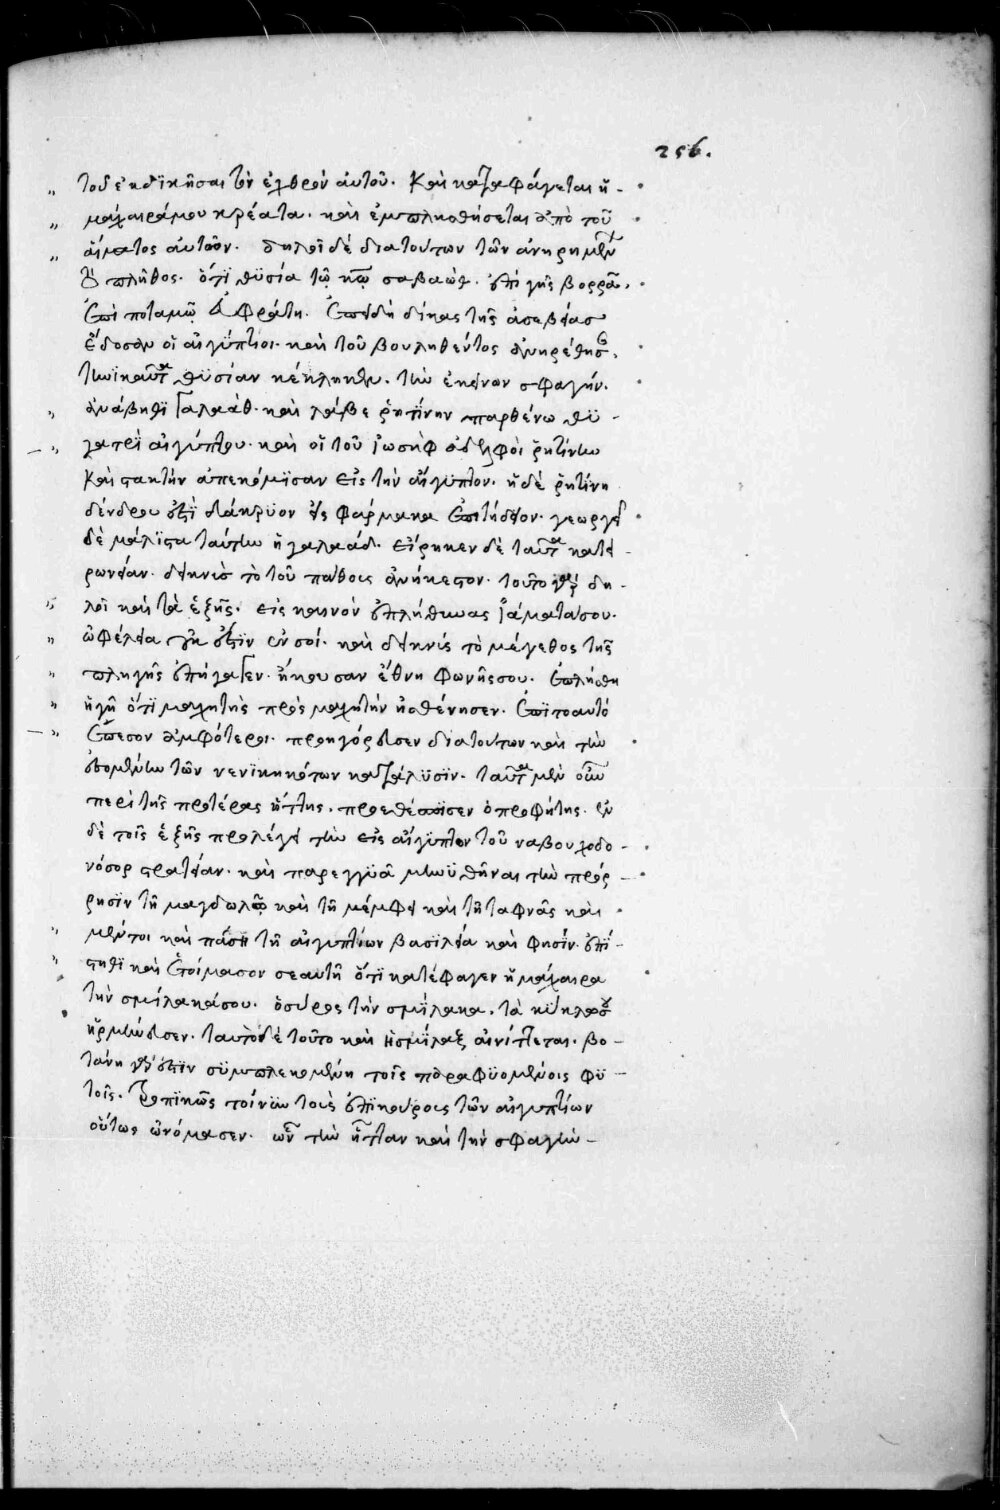 256.
τοῦ ἐκδικῆσαι τὸν ἐχθρὸν αὐτοῦ. Καὶ καταφάγεται ἡ
μάχαιρά μου κρέατα. καὶ ἐμπλησθήσεται ἀπὸ τοῦ
αἵματος αὐτῶν. δηλοῖ δὲ διὰ τούτων τῶν ἀνῃρημένων
τὸ πλῆθος. ὅτι θυσία τῷ κω σαβαώθ. ἐπὶ γῆς βορρᾶ.
ἐπὶ ποταμῷ εὐφράτῃ. Ἐπειδὴ δίκας τῆς ἀσεβείας
ἔδοσαν οἱ αἰγύπτιοι. καὶ τοῦ βουληθέντος ἀνῃρέθησαν,
θυσίαν κέκληκεν. τὴν ἐκείνων σφαγήν.
ἀνάβηθι γαλαὰδ. καὶ λάβε ῥητίνην παρθένω θυ-
γατρὶ αἰγύπτου. καὶ οἱ τοῦ ἰωσὴφ ἀδελφοὶ ῥητίνην
καὶ στακτὴν ἀπεκόμισαν εἰς τὴν αἴγυπτον. ἡ δὲ ῥητίνη
δένδρου ἐστὶ δάκρυον εἰς φάρμακα ἐπιτήδειον. γεωργεῖ
δὲ μάλιστα ταύτην ἡ γαλαάδ. εἴρηκεν δὲ ταῦτα κατει-
ρωνείαν. δεικνὺς τὸ τοῦ πάθους ἀνήκεστον. τοῦτο γὰρ δη-
λοῖ καὶ τὰ ἑξῆς. εἰς καινὸν ἐπλήθυνας ἰάματά σου.
ὠφέλεια οὐκ ἔστιν ἐν σοί. καὶ δεικνὺς τὸ μέγεθος τῆς
πληγῆς ἐπήγαγεν. ἤκουσαν ἔθνη φωνῆς σου. ἐπλήσθη
ἡ γῆ ὅτι μαχητὴς πρὸς μαχητὴν ἠσθένησεν. ἐπιτοαυτὸ
ἔπεσον ἀμφότεροι. προηγόρευσεν διὰ τούτων καὶ τὴν
ἐσομένην τῶν νενικηκότων κατάλυσιν. ταῦτα μὲν οὖν
περὶ τῆς προτέρας ἥττης. προεθέσπισεν ὁ προφήτης. ἐν
δὲ τοῖς ἑξῆς προλέγει τὴν εἰς αἴγυπτον τοῦ ναβουχοδο-
νόσορ στρατείαν. καὶ παρεγγυᾶ μηνυθῆναι τὴν πρόρ-
ρησιν τῇ μαγδωλῷ καὶ τῇ μέμφει καὶ τῇ ταφνᾶς καὶ
μέντοι καὶ πάσῃ τῇ αἰγυπτίων βασιλεία καὶ φησίν. ἐπί-
στηθι καὶ ἑτοίμασον σεαυτῇ ὅτι κατέφαγεν ἡ μάχαιρα
τὴν σμίλακά σου. ὁ σύρος τὴν σμίλακα,
ἡρμήνευσεν. ταυτὸ δὲ τοῦτο καὶ ἡ σμίλαξ αἰνίττεται. βο-
τάνη γάρ ἐστιν συμπλεκομένη τοῖς παραφυομένοις φυ-
τοῖς. τροπικῶς τοίνυν τοὺς ἐπικούρους τῶν αἰγυπτίων
οὕτως ὠνόμασεν. ὧν τὴν ἧτταν καὶ τὴν σφαγὴν-